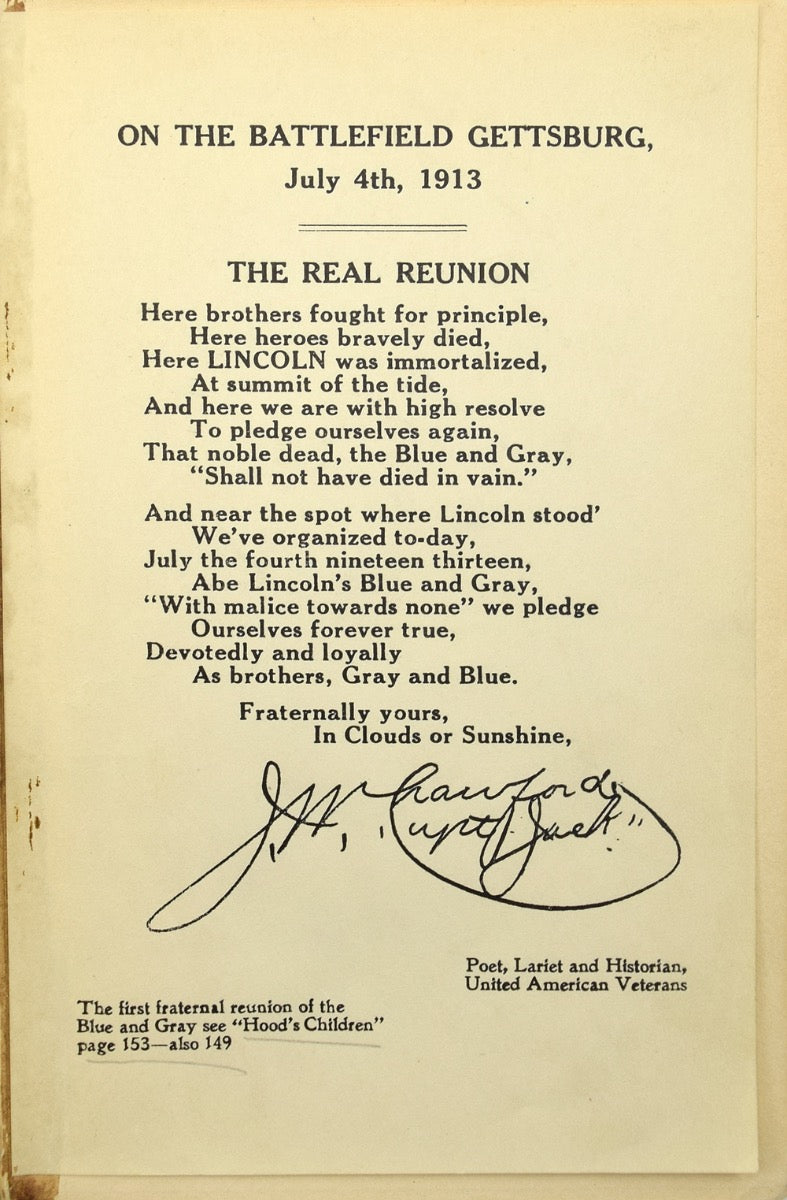 ON THE BATTLEFIELD GETTSBURG,
July 4th, 1913
THE REAL REUNION
Here brothers fought for principle,
Here heroes bravely died,
Here LINCOLN was immortalized,
At summit of the tide,
And here we are with high resolve
To pledge ourselves again,
That noble dead, the Blue and Gray,
“Shall not have died in vain.”
And near the spot where Lincoln stood’
We’ve organized to-day,
July the fourth nineteen thirteen,
Abe Lincoln’s Blue and Gray,
“With malice towards none” we pledge
Ourselves forever true,
Devotedly and loyally
As brothers, Gray and Blue.
Fraternally yours,
In Clouds or Sunshine,
J.W. Crawford
"Capt Jack"
Poet, Lariet and Historian,
United American Veterans
The first fraternal reunion of the
Blue and Gray see “Hood’s Children”
page 153—also 149